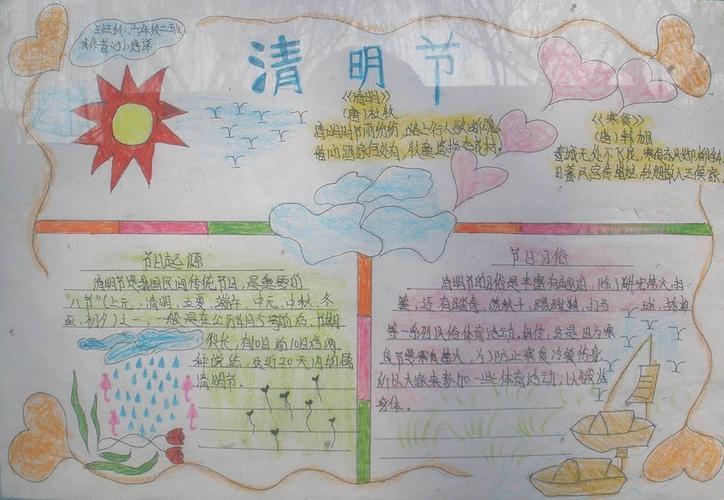 班级：六年级二班
清明节
《清明》
(唐)杜牧
清明时节雨纷纷，路上行人欲断魂。
借问酒家何处有，牧童遥指杏花村。
《寒食》
(唐)韩翃
春城无处不飞花，寒食东风御柳斜
日暮汉宫传蜡烛，轻烟散入五侯家。
节日起源
清明节是我国民间传统节日，是重要的
“八节”(上元、清明、立夏、端午、中元、中秋、冬
至、初夕)之一，一般是在公历4月5号前后，节期
很长，有10日前10日后两
种说法，这近20天内均属
清明节。
节日习俗
清明节的习俗是丰富有趣的，除了讲究禁火、扫
墓，还有踏青、荡秋千、蹴鞠、打马球、插柳
等一系列风俗体育活动。相传，这是因为寒
食节要寒食禁火，为了防止寒食冷餐伤身
所以大家来参加一些体育活动，以锻炼
身体。